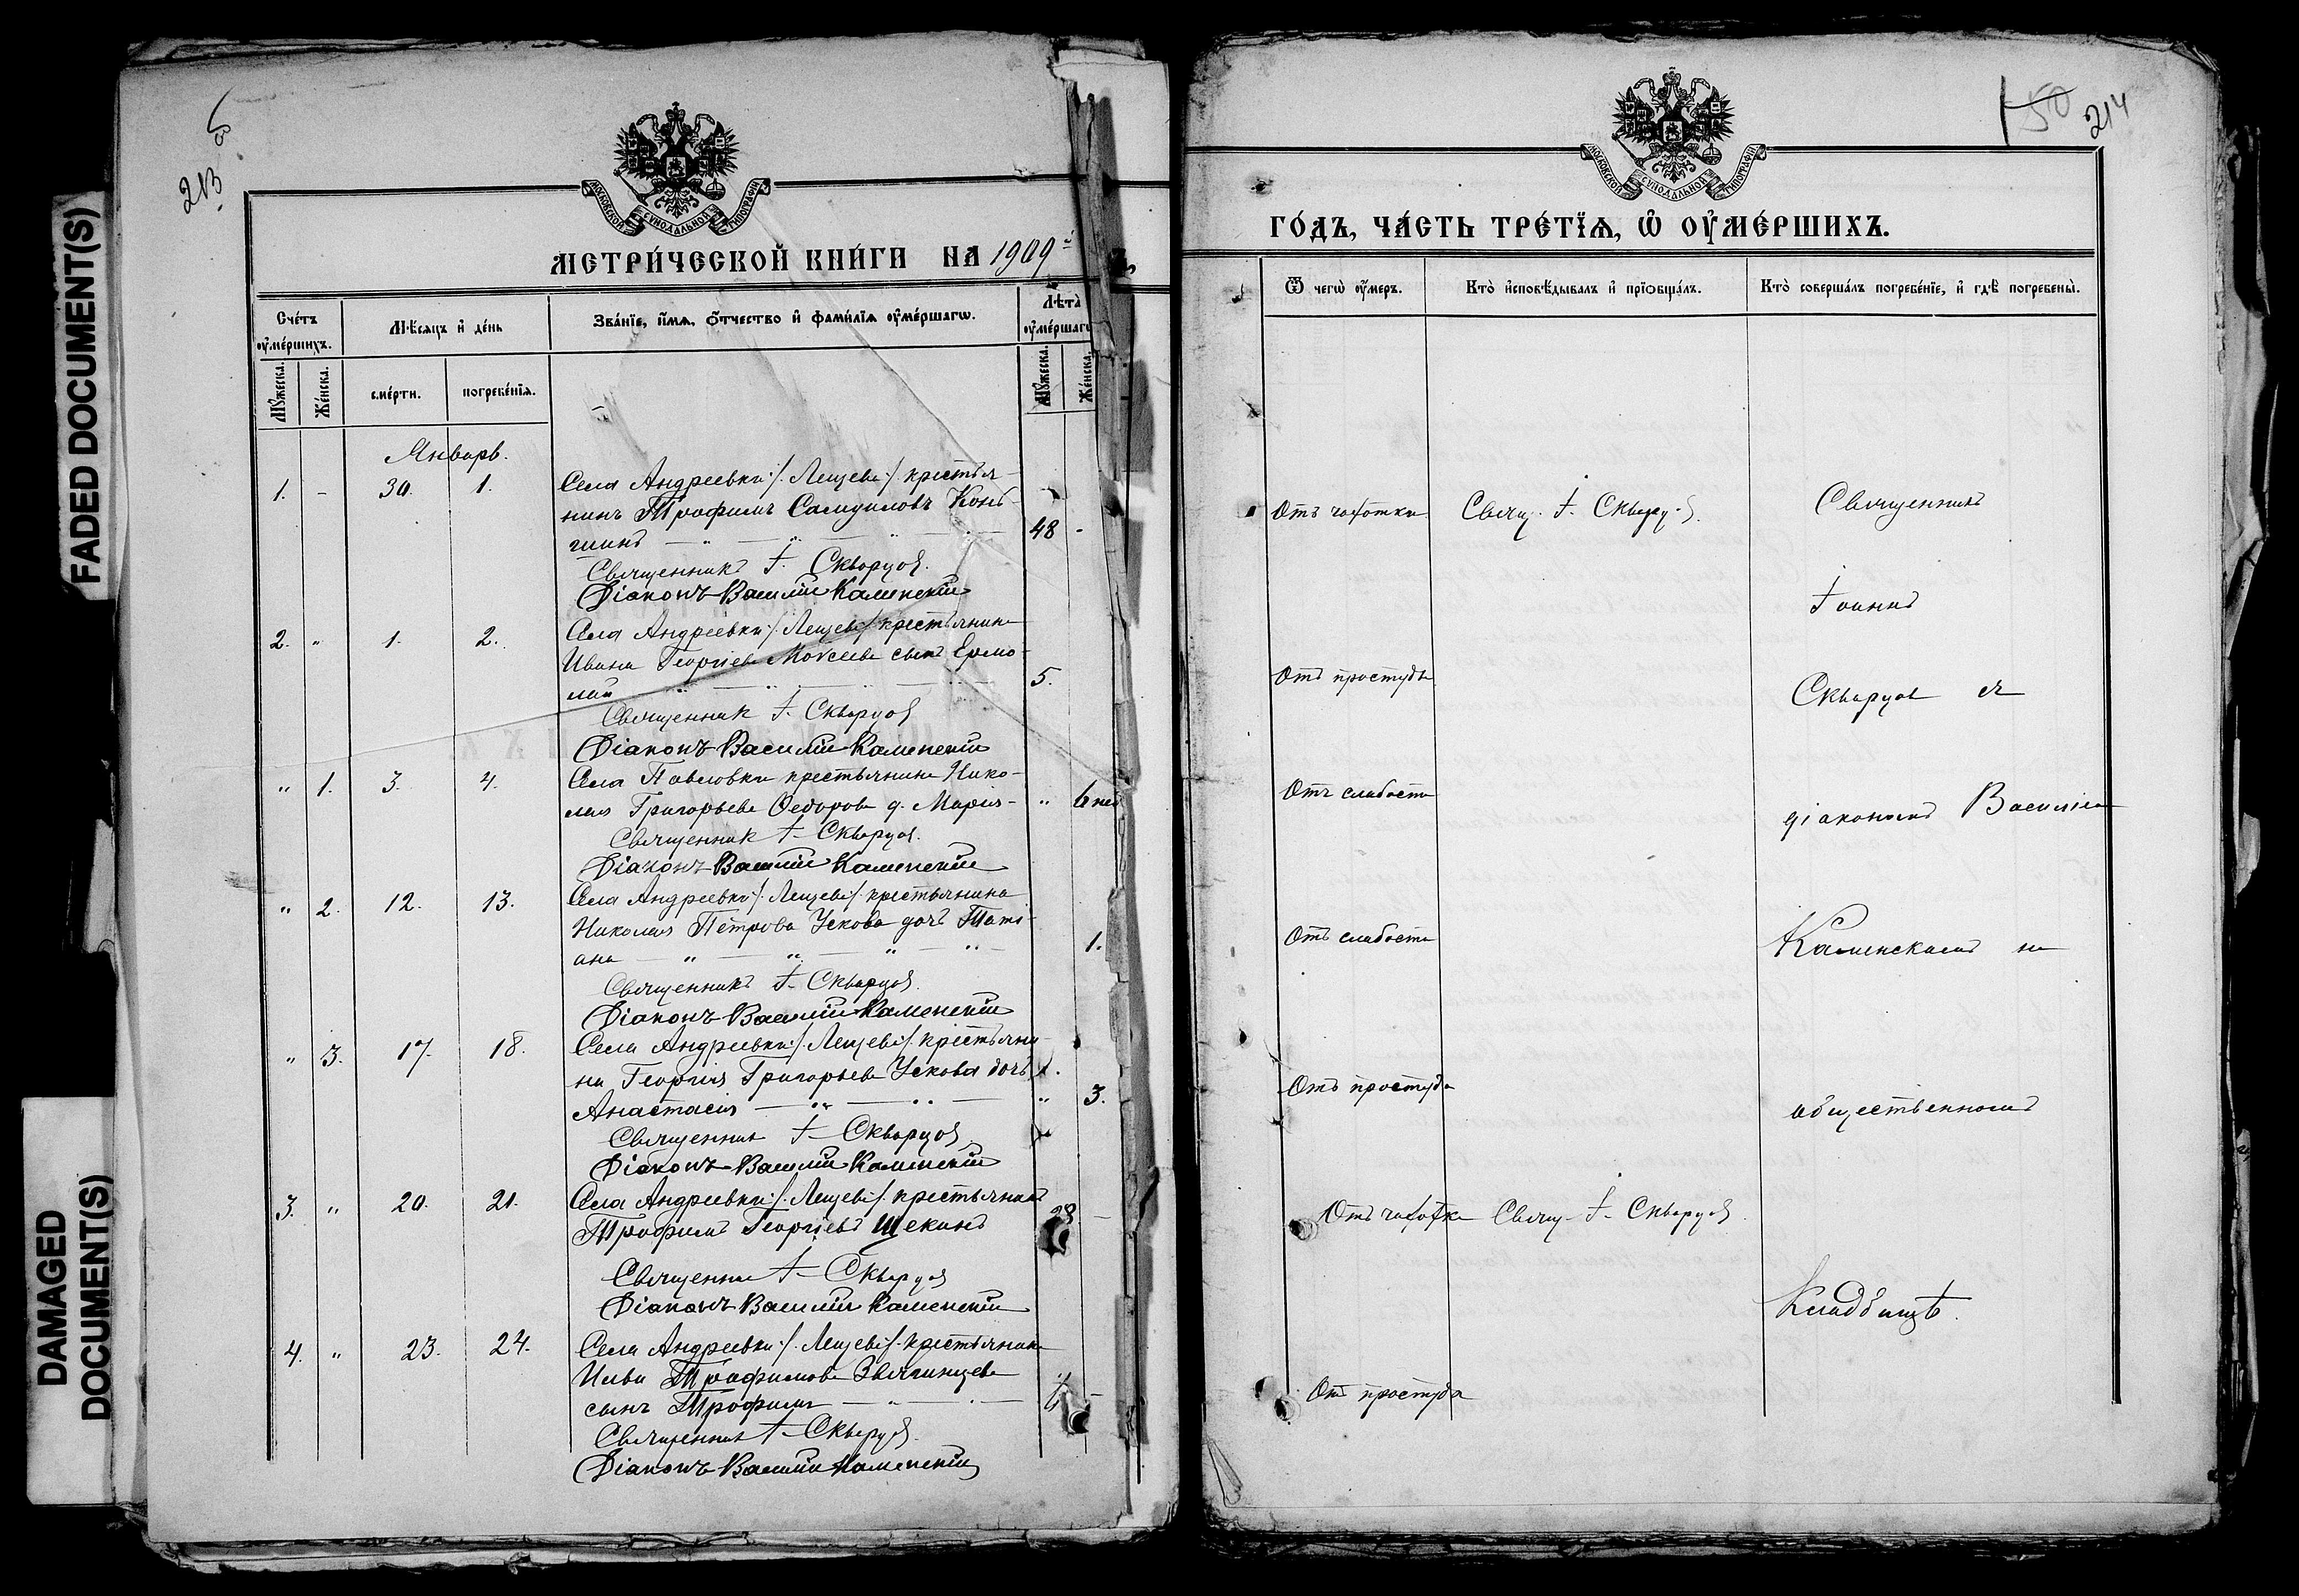 FADED DOCUMENT(S)
DAMAGED
DOCUMENT(S)
213
МОСКОВСКОЙ СѴНОДАЛЬНОЙ ТИПОГРАФІИ
МЕТРИ́ЧЕСКОЙ КНИ́ГИ НА 1909й
Сче́тъ ᲂу҆ме́ршихъ.
Мѣ́сяцъ и҆ де́нь
Зва́нїе, и҆́мѧ, ѻ҆́тчество и҆ фами́лїѧ ᲂу҆ме́ршагѡ.
Лѣта̀ ᲂу҆ме́ршагѡ
Мꙋ́жеска.
Же́нска.
сме́рти.
погребе́нїѧ.
Мꙋ́жеска.
Же́нска.
Январь.
1. - 30. 1. Села Андреевки /Лещево/ крестья-
нинъ Трофимъ Самуиловъ Конь-
шинъ 48 -
Священникъ І. Скворцов.
Діаконъ Василій Каменскій
2. " 1. 2. Села Андреевки /Лещево/ крестьянина
Ивана Георгіева Моисеева сынъ Ермо-
лай 5.
Священник І. Скворцов
Діаконъ Василій Каменскій
" 1. 3. 4. Села Павловки крестьянина Нико-
лая Григорьева Федорова д. Марія - " 6 не
Священник І. Скворцов.
Діаконъ Василій Каменскій
" 2. 12. 13. Села Андреевки /Лещево/ крестьянина
Николая Петрова Ускова дочь Тати-
ана 1.
Священникъ І. Скворцов.
Діаконъ Василій Каменскій
" 3. 17. 18. Села Андреевки /Лещево/ крестьяни-
на Георгія Григорьева Ускова дочь
Анастасія " 3.
Священник І. Скворцов
Діаконъ Василій Каменскій
3. " 20. 21. Села Андреевки /Лещево/ крестьянинъ
Трофимъ Георгіевъ Щекинъ 28. -
Священник І. Скворцов
Діаконъ Василій Каменскій
4. " 23. 24. Села Андреевки /Лещево/ крестьянина
Ильи Трофимова Звягинцева
сынъ Трофимъ
Священник І. Скворцов.
Діаконъ Василій Каменскій
50 214
МОСКОВСКОЙ СѴНОДАЛЬНОЙ ТИПОГРАФІИ
ГО́ДЪ, ЧА́СТЬ ТРЕ́ТЇѦ, Ѽ ОУ҆МЕ́РШИХЪ.
Ѿ чегѡ̀ ᲂу҆́меръ.
Кто̀ и҆сповѣ́дывалъ и҆ прїѡбща́лъ.
Кто̀ соверша́лъ погребе́нїе, и҆ гдѣ̀ погребены̀.
Отъ чахотки Свящ. І. Скворцов. Священникъ
Іоаннъ
Отъ простуды Скворцов съ
Отъ слабости діакономъ Василіем
Отъ слабости Каменскимъ на
Отъ простуды общественномъ
Отъ чахотки Свящ. І. Скворцов
Кладбищѣ.
От простуды